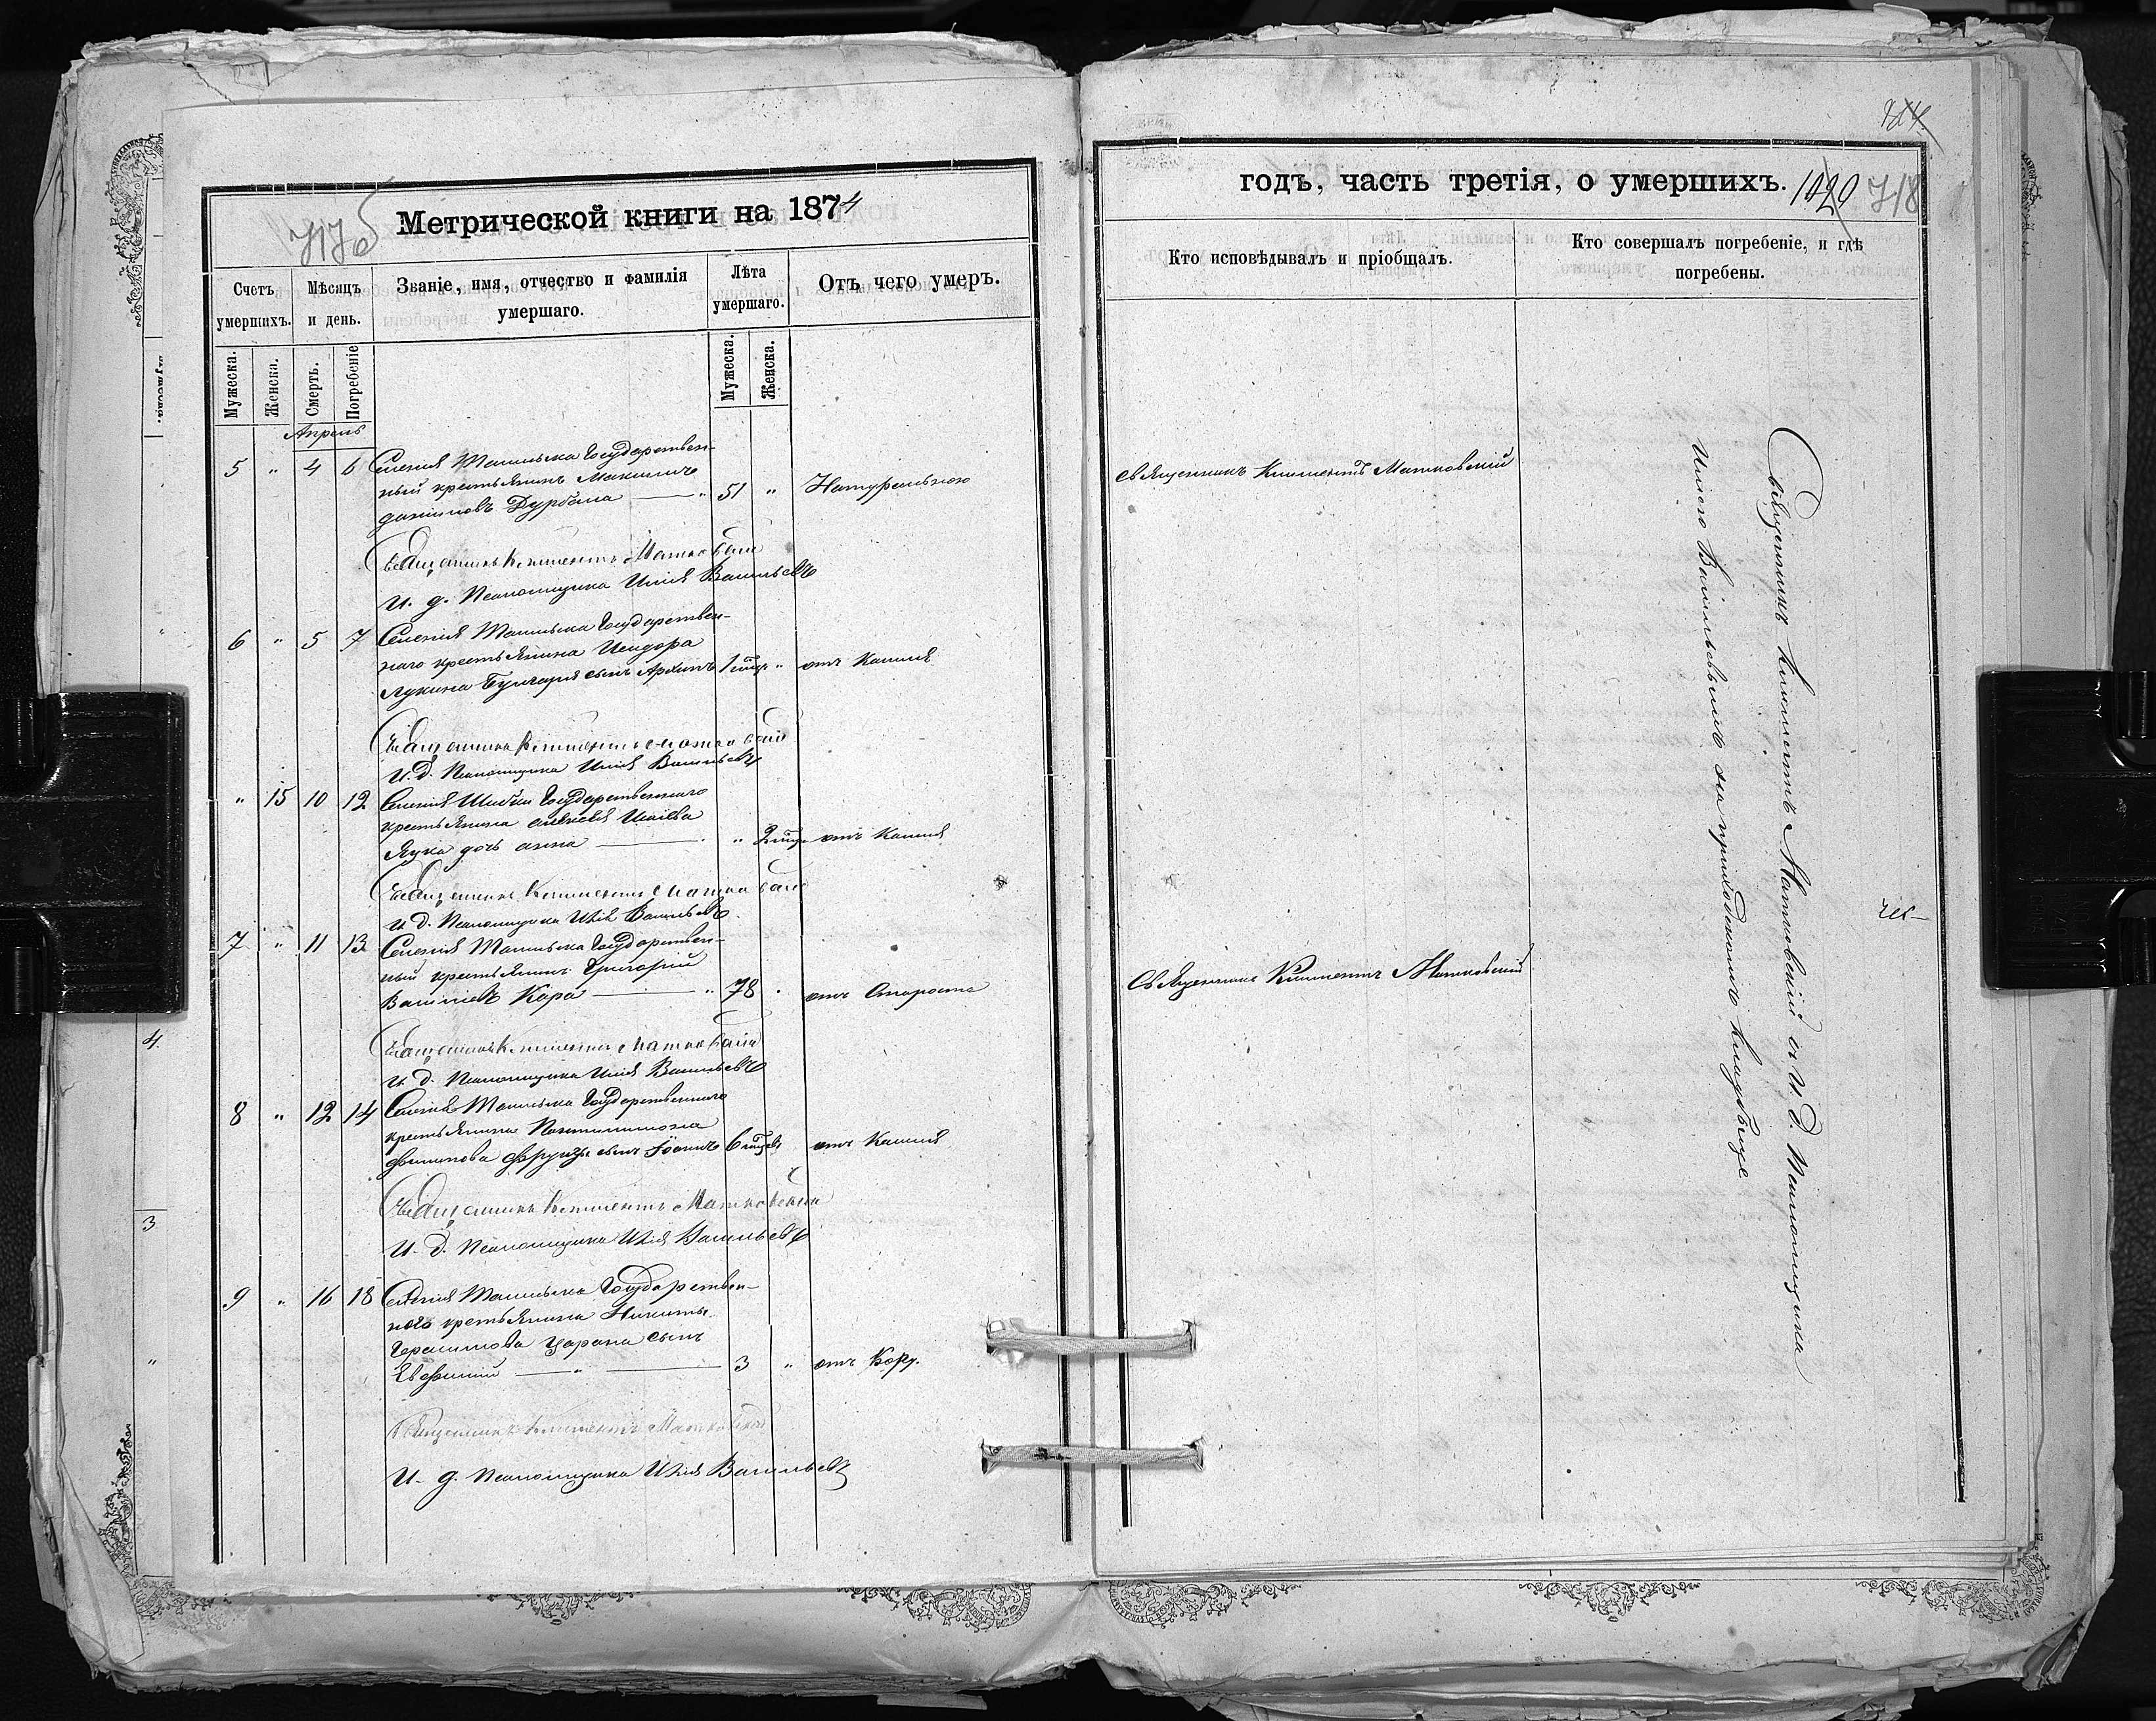 7175
Метрической книги на 1874
Счетъ умершихъ.
Мѣсяцъ и день.
Званіе, имя, отчество и фамилія умершаго.
Лѣта умершаго.
Отъ чего умеръ.
Мужеска.
Женска.
Смерть.
Погребеніе
Мужеска.
Женска.
Апрель
5 " 4 6 Селенія Государствен-
ный крестьянинъ
Дурбала 51 " Натуральною
Священникъ Климентъ Матковскій
И. д. Псаломщика Илія Васильевъ
6 " 5 7 Селенія Государствен-
наго крестьянина Исидора
Лукина сынъ Архипъ 1 " отъ Кашля
Священникъ Климентъ Матковскій
И. д. Псаломщика Илія Васильевъ
" 15 10 12 Селенія Государственнаго
крестьянина Алексея
дочь Анна " 2 отъ Кашля
Священникъ Климентъ Матковскій
И. д. Псаломщика Илія Васильевъ
7 " 11 13 Селенія Государствен-
ный крестьянинъ Григорій
Кара 78 отъ Старости
Священникъ Климентъ Матковскій
И. д. Псаломщика Илія Васильевъ
8 " 12 14 Селенія Государственнаго
крестьянина
Филипова сынъ Іоаннъ 6 отъ Кашля
Священникъ Климентъ Матковскій
И. д. Псаломщика Илія Васильевъ
9 " 16 18 Селенія Государствен-
ного крестьянина Никиты
Герасимова Царана сынъ
Евфимій " 3 " отъ Кору.
Священникъ Климентъ Матковскій
И. д. Псаломщика Илія Васильевъ
годъ, часть третія, о умершихъ. 1020 718
Кто исповѣдывалъ и пріобщалъ.
Кто совершалъ погребеніе, и гдѣ погребены.
Священникъ Климентъ Матковскій
Священникъ Климентъ Матковскій
Священникъ Климентъ Матковскій с И. д. Псаломщика
Иліею Васильевымъ на приходскомъ кладбище
4.
3